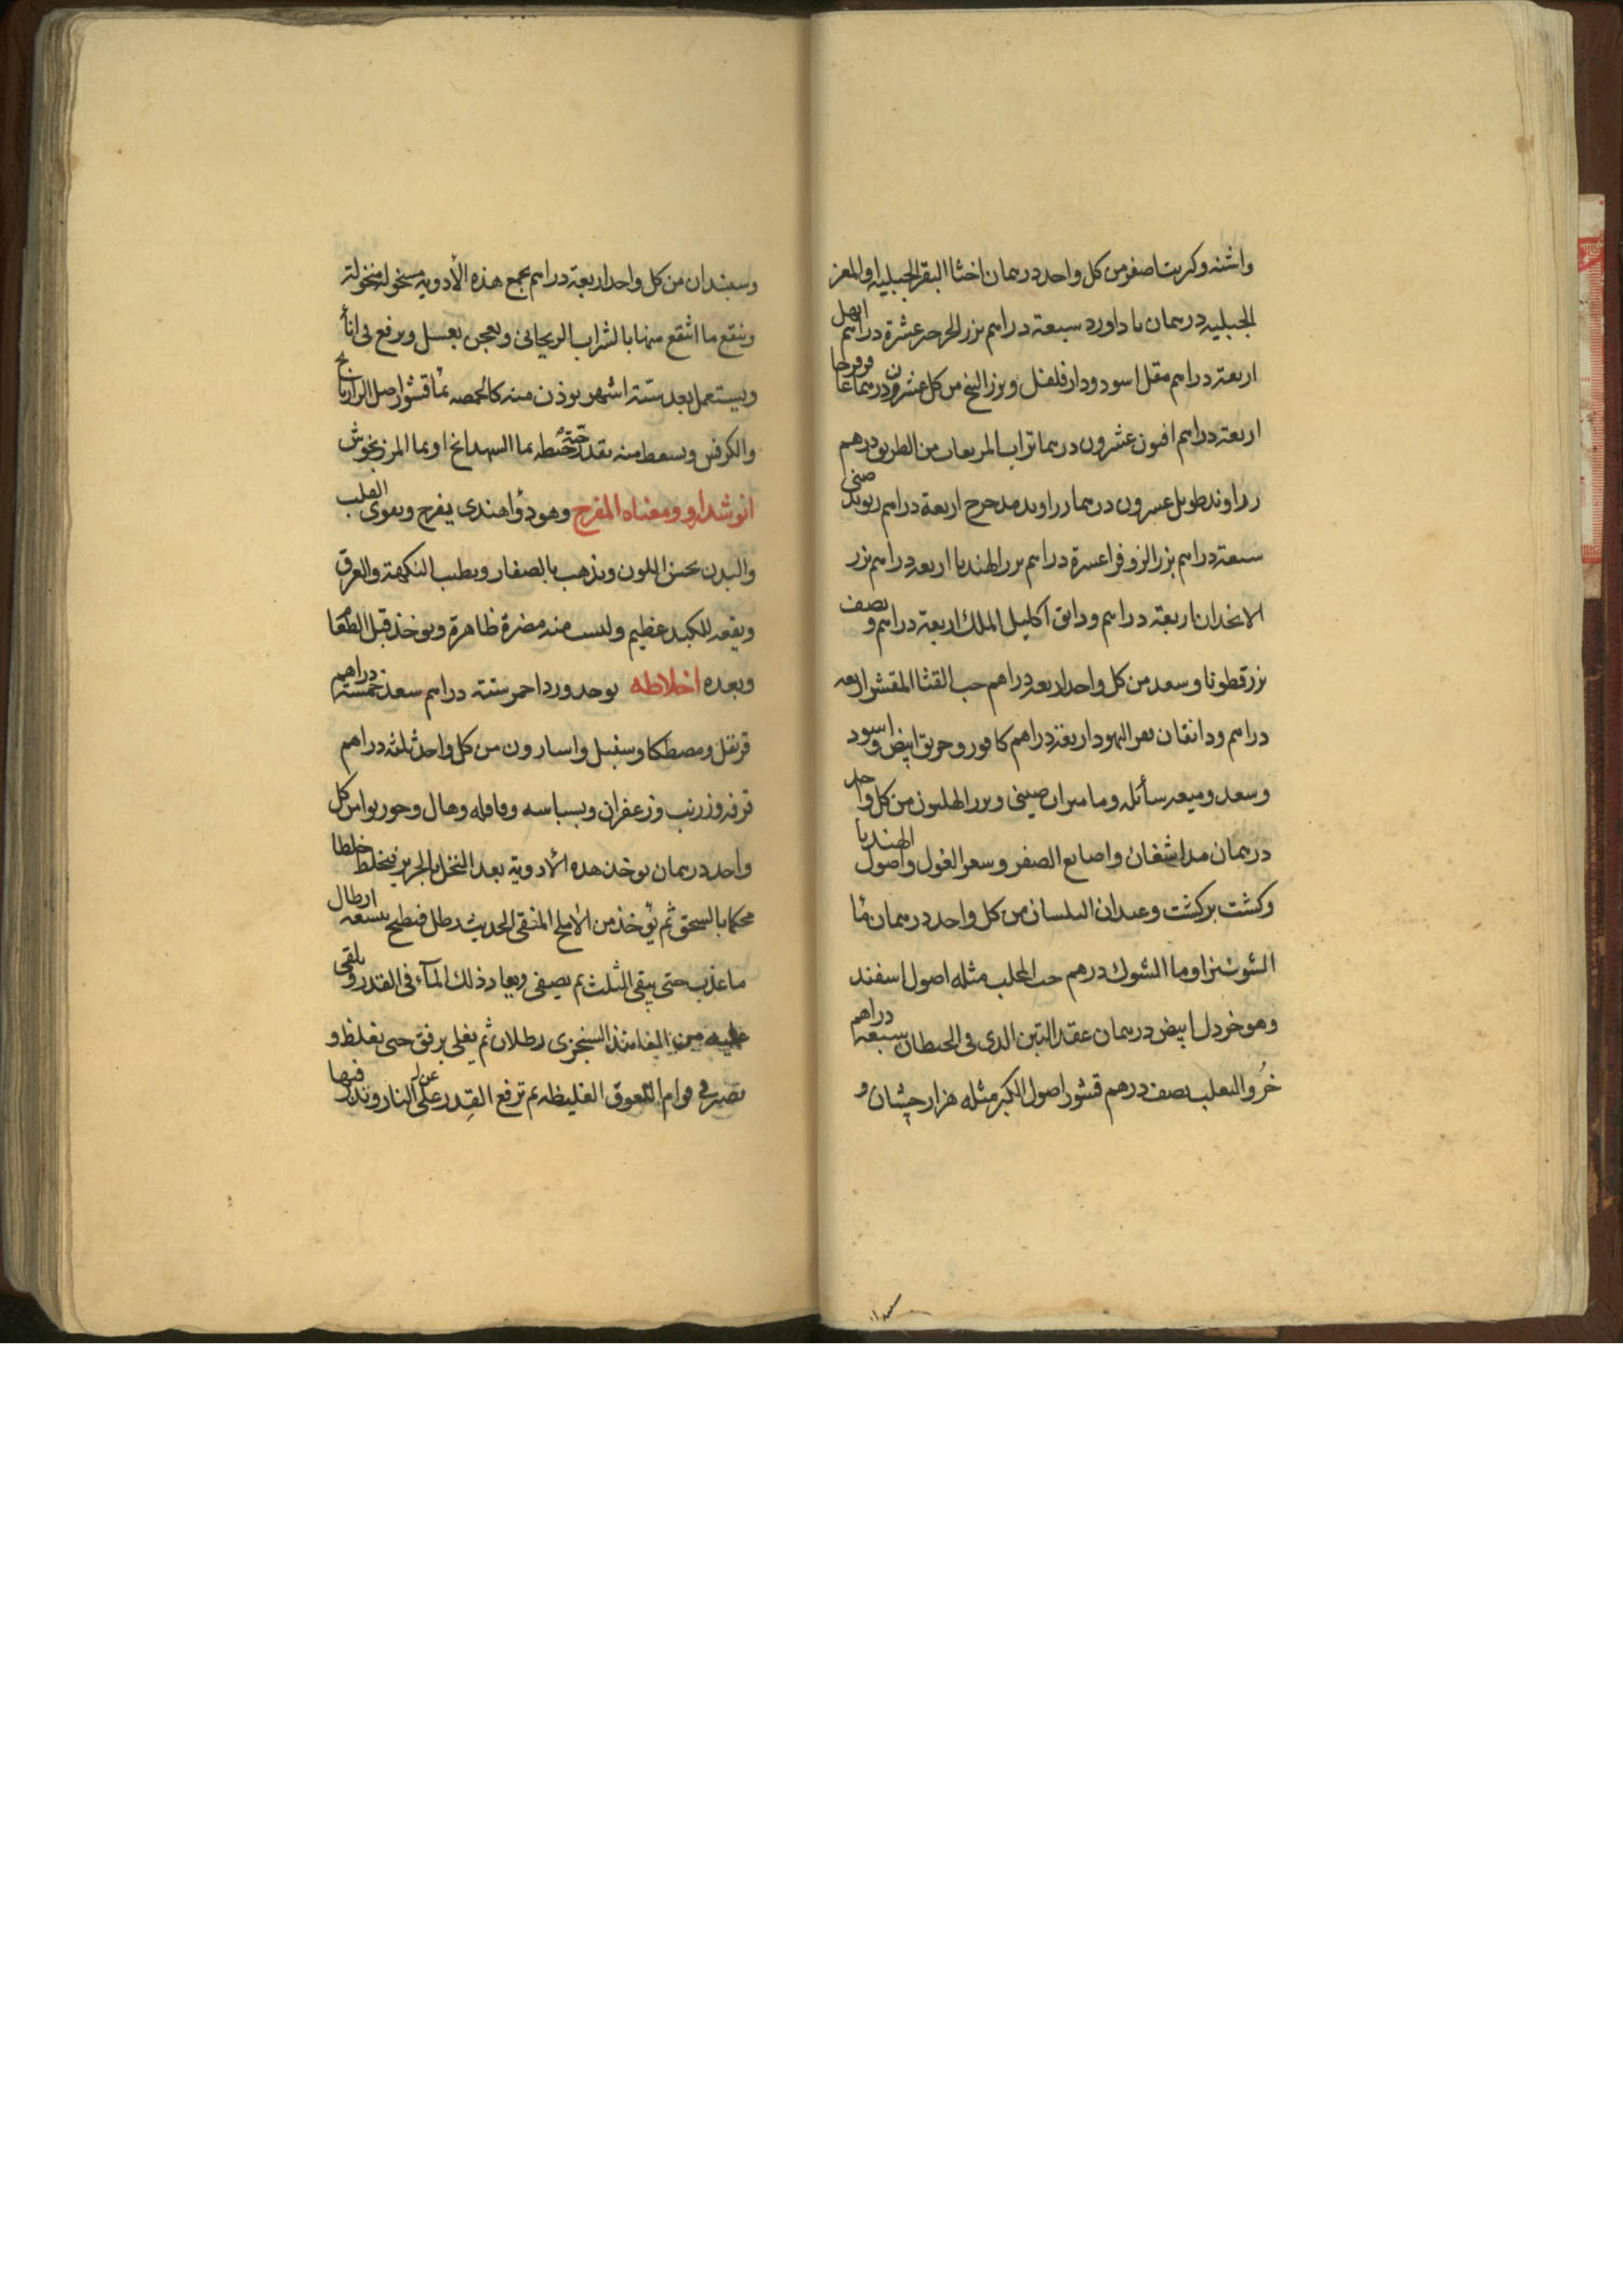 واشنه وكريت اصفر من كل واحد درهمان اخثا البقر الجبليه او المعز
الجبليه درهمان باداورد سبعة دراهم بزر الجرجر عشرة دراهم ابهل
اربعة دراهم مقل اسود ودار فلفل وبزر البنج من كل عشرون درهما
اربعة دراهم افيون عشرون درهما تراب المربعات من الطريق درهم
زراوند طويل عشرون درهما زراوند مدحرج اربعة دراهم ريوند صيني
سبعة دراهم بزر الزوفرا عشرة دراهم بزر الهندبا اربعه دراهم بزر
الانجدان اربعة دراهم ودانق اكليل الملك اربعة دراهم ونصف
بزرقطونا وسعد من كل واحد اربعه دراهم حب القثا المقشر اربعه
دراهم ودانقان بعر اليهود اربعة دراهم كافور وخربق ابيض واسود
وسعد وميعه سائله وماميران صيني وبزر الهليون من كل واحد
درهمان مداشغان واصابع الصفر وسعر الغول واصول الهندبا
وكشت بركشت وعيدان البلسان من كل واحد درهمان
وما الشوك درهم حب المحلب مثله اصول اسفند
وهو خردل ابيض درهمان عقد التين الذى فى الحيطان سبعه دراهم
خرو الثعلب نصف درهم قشور اصول الكبر مثله هزارجشان و
وسبندان من كل واحد اربعة دراهم بجمع هذه الأدويه منخولة
وينقع ما انتقع منها بالشراب الريحانى ويعجن بعسل ويرفع فى اناً
ويستعمل بعد ستة اشهر يوذن منه كالحمصه بما قشور اصل الرازيانج
والكرفس ويسعط منه بقدر حبة حنطه بما الشهدانج او بما المرزنجوش
انوشدارو ومعناه المفرح وهو دواً هندى يفرح ويقوى القلب
والبدن يحسن اللون ويذهب بالصفار ويطيب النكهة والعرق
ونفعه للكبد عظيم وليست منه مضرة ظاهرة ويوخذ قبل الطعام
وبعده اخلاطه يوخذ ورد احمر ستة دراهم سعد خمسة دراهم
قرنفل ومصطكا وسنبل واسارون من كل واحد ثلثه دراهم
قرفه وزرنب وزعفران وبسباسه وقاقله وهال وجوز بوا من كل
واحد درهمان يوخذ هذه الأدوية بعد النخل بالحرير فيخلط خلطا
محكما بالسحق ثم يؤخذ من الاملج المنقى الحديث رطل فيطبخ بتسعه ارطال
ما عذب حتى يبقى الثلث ثم يصفى ويعاد ذلك المآء فى القدر ويلقى
عليه من الفانيذ السنجزى رطلان ثم يغلى برفق حتى يغلظ و
يصير فى قوام اللعوق الغليظه ثم ترفع القدر عن على النار ويذر فيها